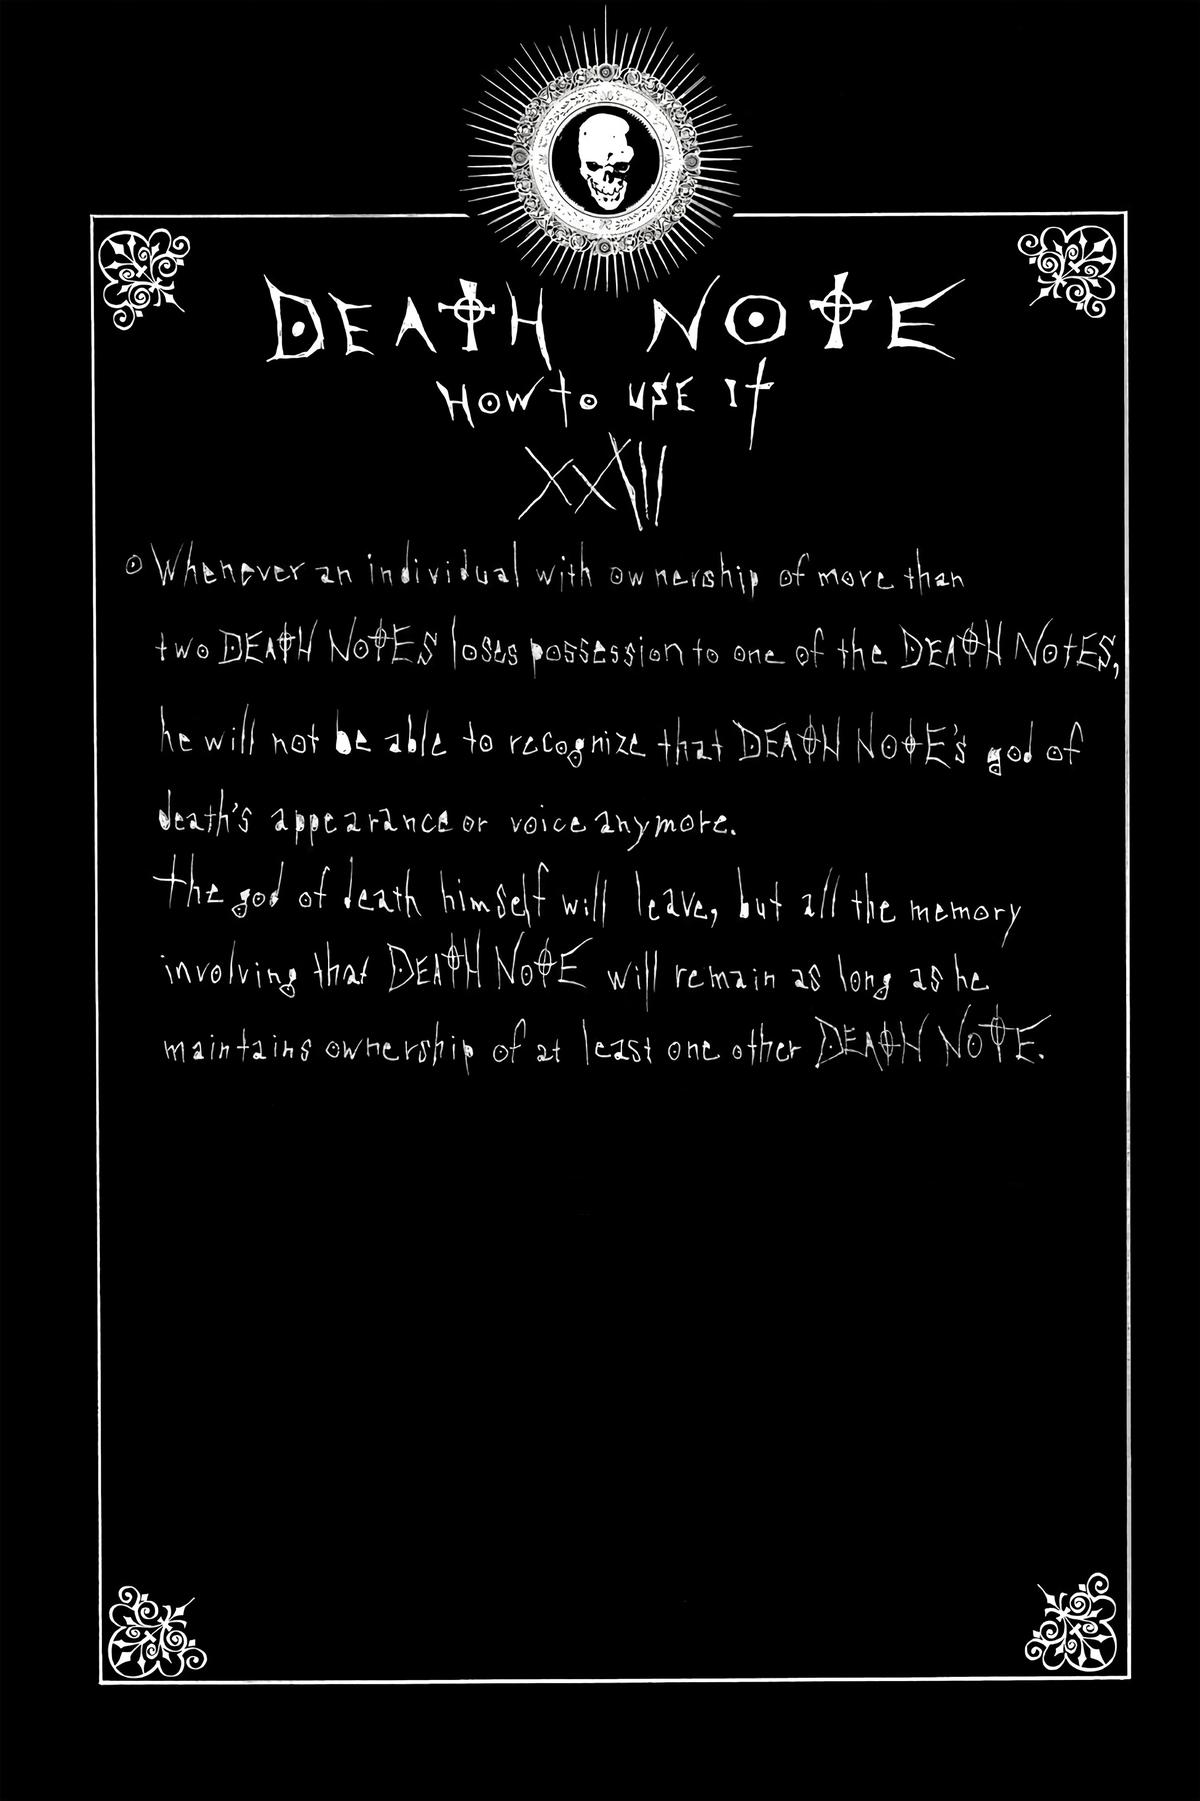 DEATH NOTE
HOW TO USE IT
XXVII
Whenever an individual with ownership of more than
two DEATH NOTES loses possession to one of the DEATH NOTES,
he will not be able to recognize that DEATH NOTE's god of
death's appearance or voice anymore.
The god of death himself will leave, but all the memory
involving that DEATH NOTE will remain as long as he
maintains ownership of at least one other DEATH NOTE.